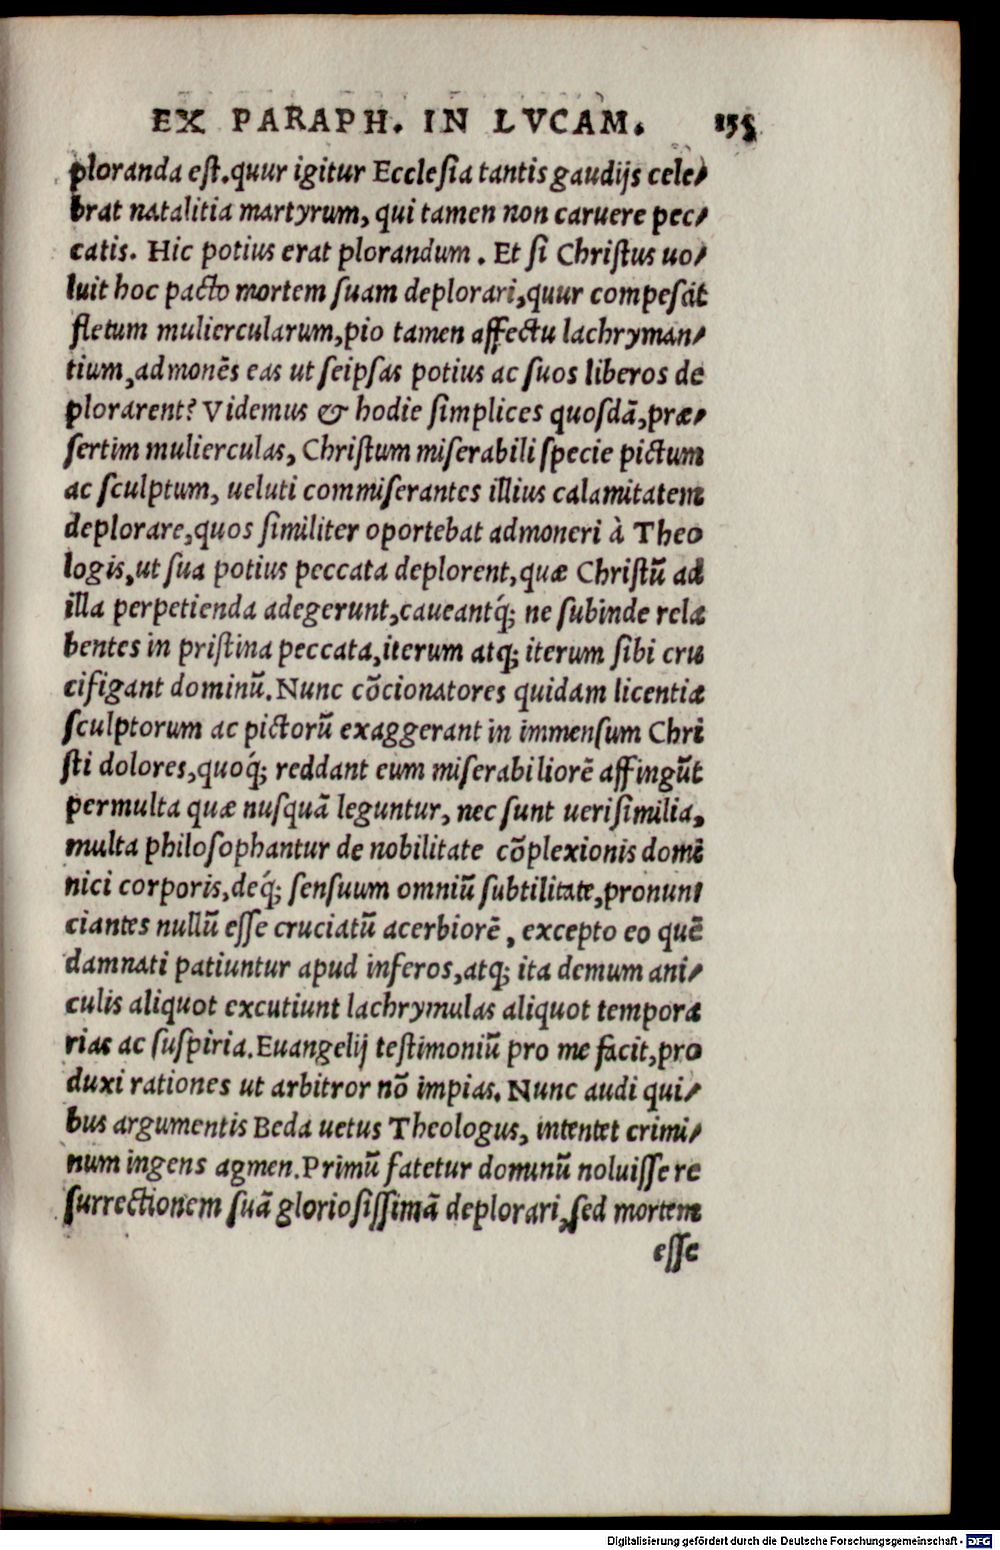 EX PARAPH. IN LVCAM. 155
ploranda est.quur igitur Ecclesia tantis gaudijs cele⸗
brat natalitia martyrum, qui tamen non caruere pec⸗
catis. Hic potius erat plorandum. Et si Christus uo⸗
luit hoc pacto mortem suam deplorari,quur compescit
fletum muliercularum,pio tamen affectu lachryman⸗
tium,admonēs eas ut seipsas potius ac suos liberos de
plorarent? Videmus & hodie simplices quosdā,præ⸗
sertim mulierculas, Christum miserabili specie pictum
ac sculptum, ueluti commiserantes illius calamitatem
deplorare,quos similiter oportebat admoneri à Theo
logis,ut sua potius peccata deplorent,quæ Christū ad
illa perpetienda adegerunt,caueantq́; ne subinde rela
bentes in pristina peccata,iterum atq; iterum sibi cru
cifigant dominū. Nunc cōcionatores quidam licentia
sculptorum ac pictorū exaggerant in immensum Chri
sti dolores,quoq́; reddant eum miserabiliorē affingūt
permulta quæ nusquā leguntur, nec sunt uerisimilia,
multa philosophantur de nobilitate cōplexionis domi
nici corporis,deq́; sensuum omniū subtilitate,pronun
ciantes nullū esse cruciatū acerbiorē, excepto eo quē
damnati patiuntur apud inferos,atq; ita demum ani⸗
culis aliquot excutiunt lachrymulas aliquot tempora
rias ac suspiria. Euangelij testimoniū pro me facit,pro
duxi rationes ut arbitror nō impias. Nunc audi qui⸗
bus argumentis Beda uetus Theologus, intentet crimi⸗
num ingens agmen. Primū fatetur dominū noluisse re
surrectionem suā gloriosissimā deplorari,sed mortem
esse
Digitalisierung gefördert durch die Deutsche Forschungsgemeinschaft - DFG